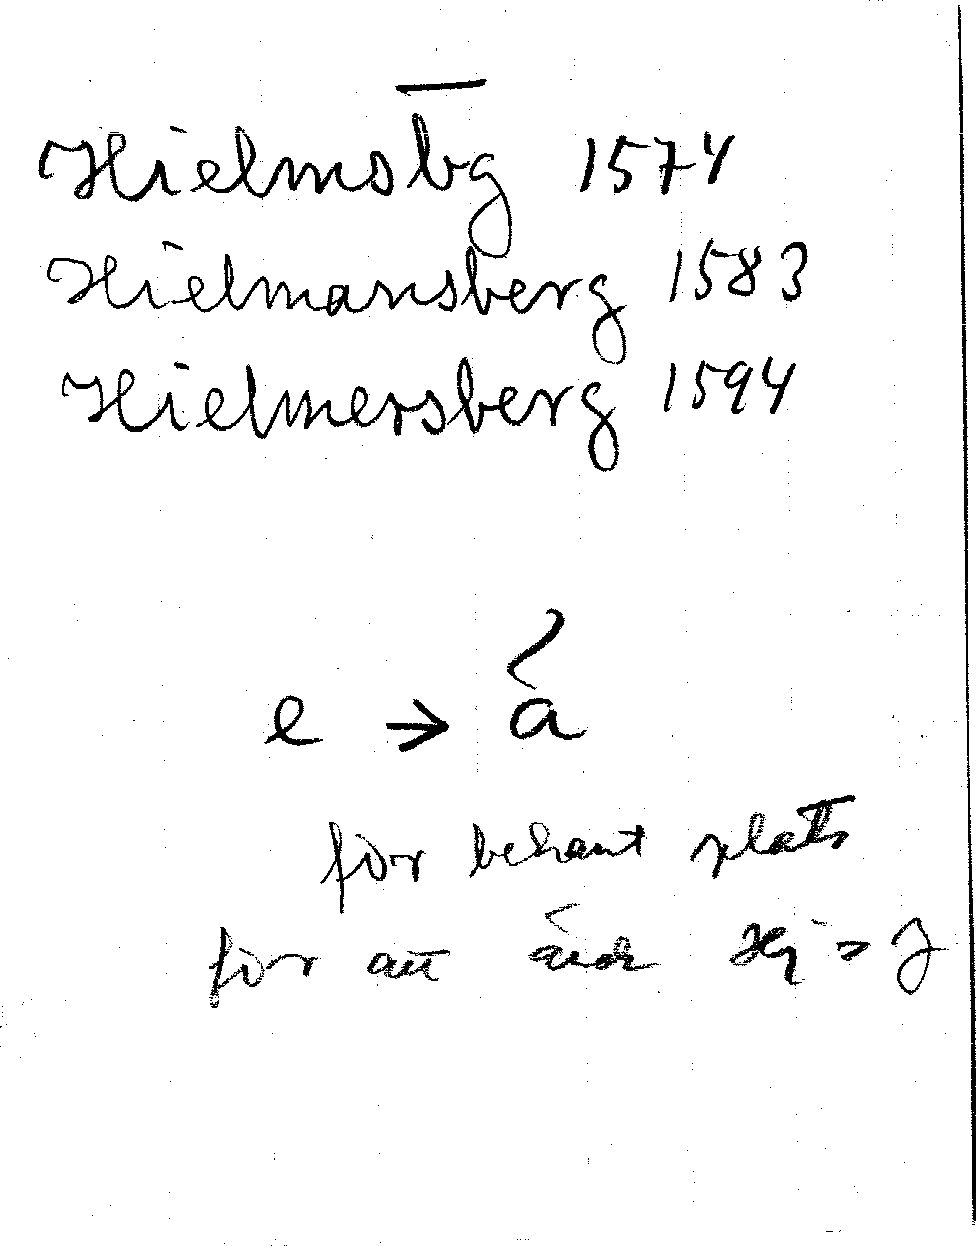 Hielmsbg 1574
Hielmansberg 1583
Hielmersberg 1594
e → a
för bekant plats
för att änd Hj > J